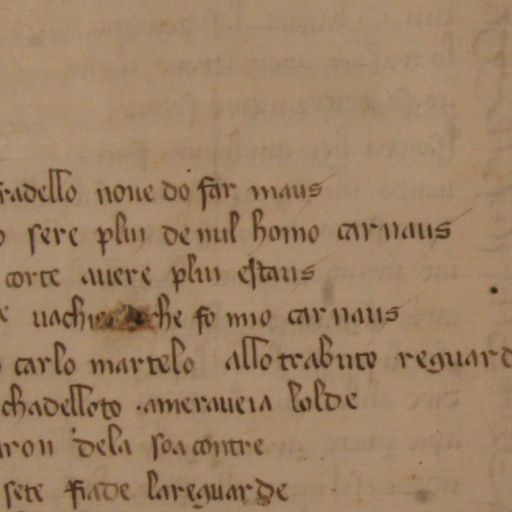 fradello noue do far maus
o sere plui de nul homo carnaus
corte auere plui estaus
e uachie che fo mio carnaus
carlo martelo allo trabuto reguard
chadelloto · ameraueia lolde
aron dela soa contre
sete fiade lareguarde